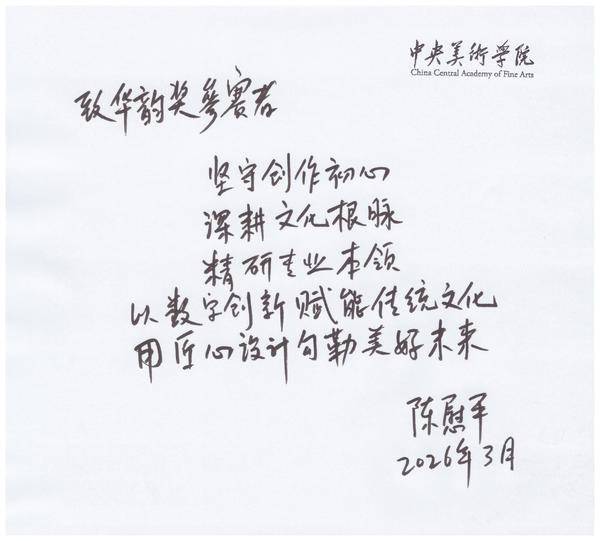 中央美術学院
China Central Academy of Fine Arts
致华韵奖参赛者
坚守创作初心
深耕文化根脉
精研专业本领
以数字创新赋能传统文化
用匠心设计勾勒美好未来
陈慰平
2026年3月